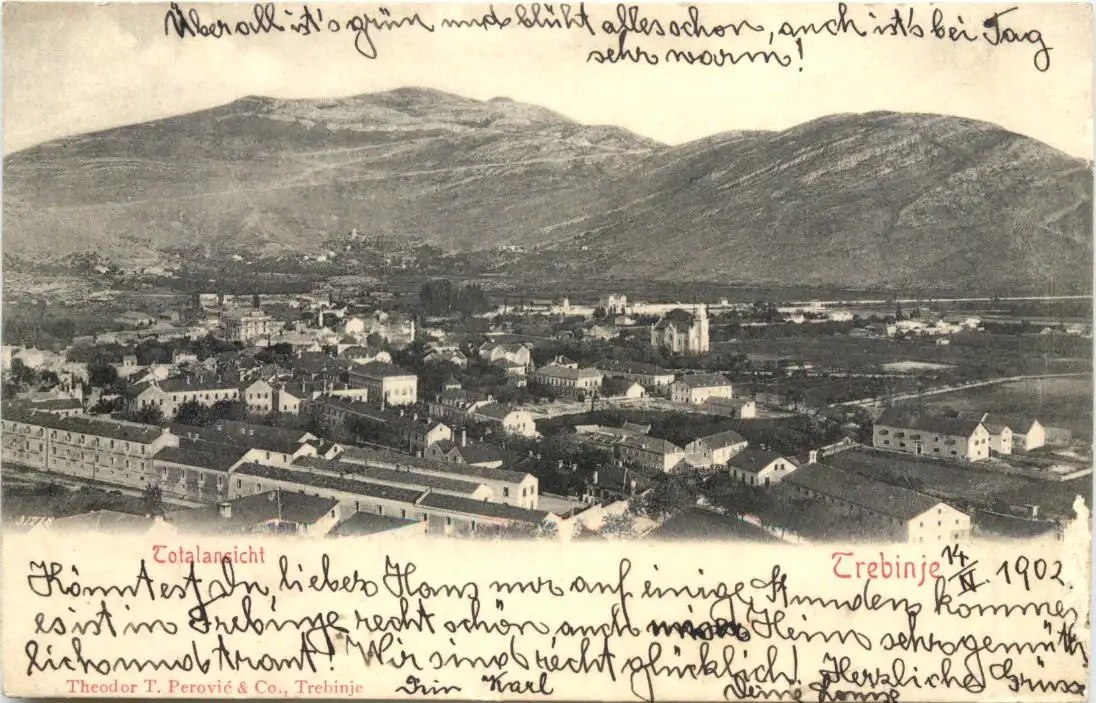 Überall ist's grün und blüht alles schon, auch ist's bei Tag
sehr warm!
3278
Totalansicht
Trebinje 14/IV. 1902.
Könntest Du, liebes Hans nur auf einige Stunden kommen
es ist in Trebinje recht schön, auch unser Heim sehr gemüth
lich und traut! Wir sind recht glücklich! Herzliche Grüsse
Theodor T. Perović & Co., Trebinje
Karl
Deine Louise